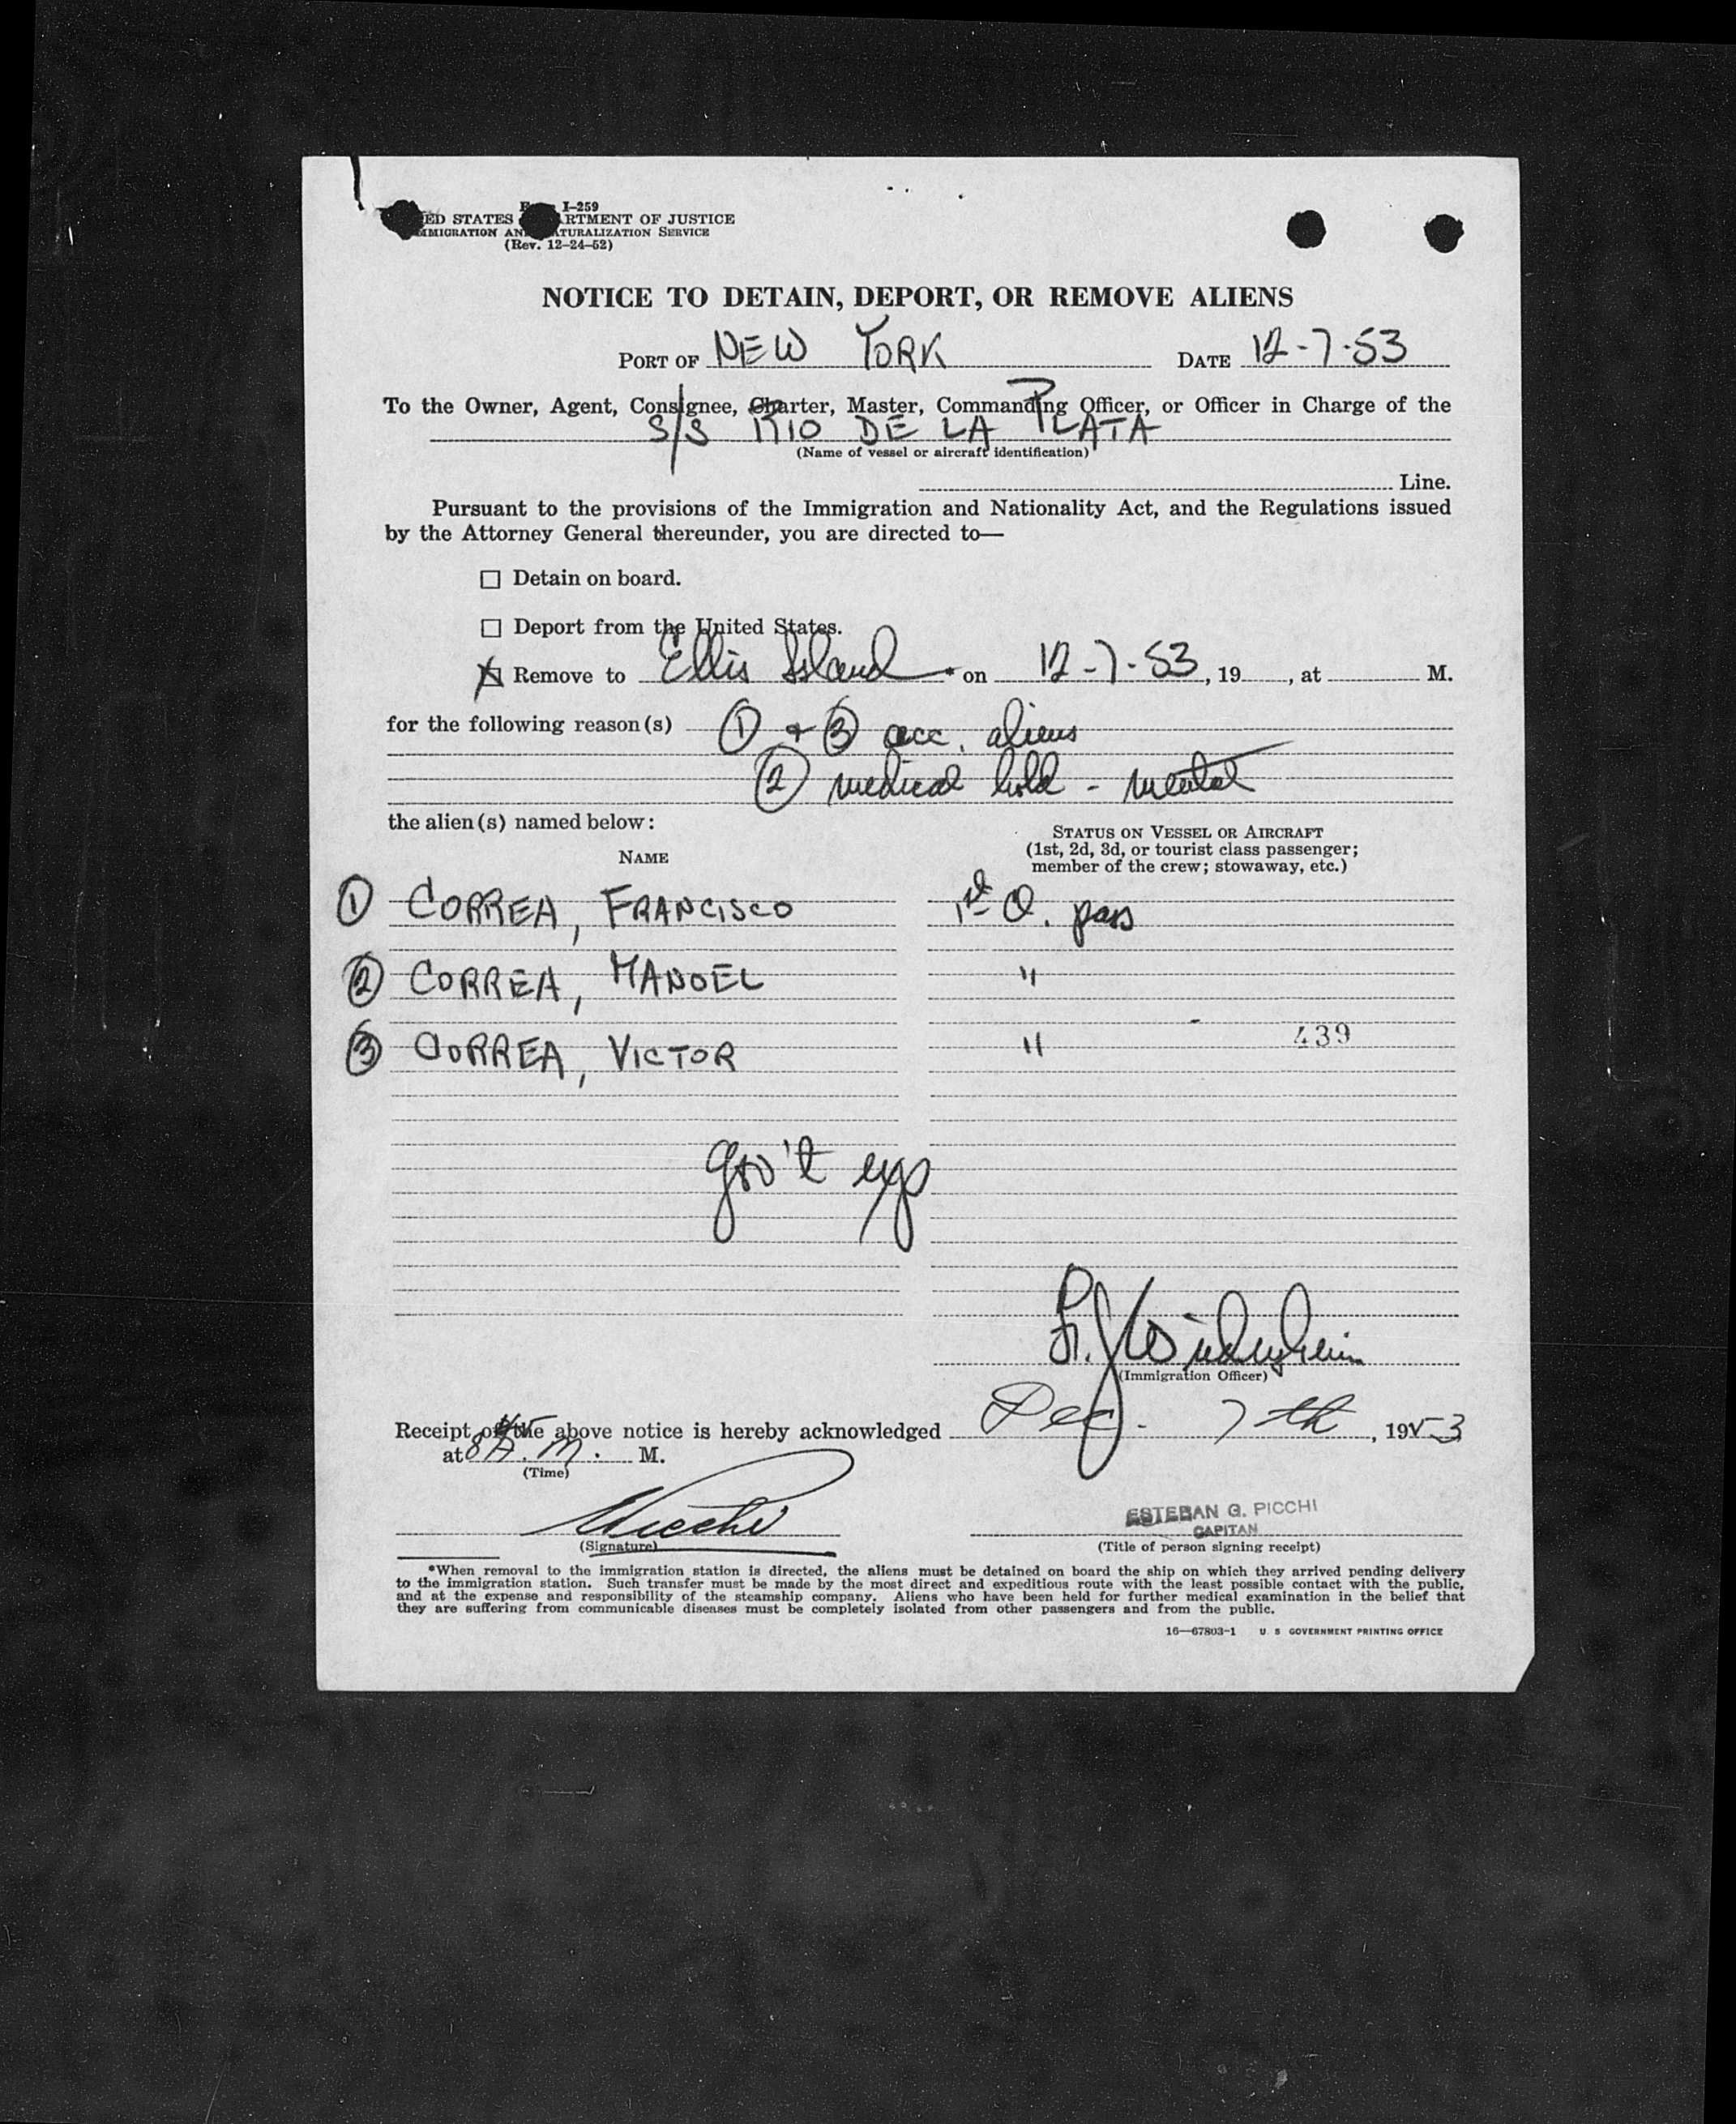 I-259
ED STATES RTMENT OF JUSTICE
MMIGRATION AN TURALIZATION SERVICE
(Rev. 12-24-52)
NOTICE TO DETAIN, DEPORT, OR REMOVE ALIENS
PORT OF NEW YORK DATE 12-7-53
To the Owner, Agent, Consignee, Charter, Master, Commanding Officer, or Officer in Charge of the
S/S RIO DE LA PLATA
(Name of vessel or aircraft identification)
Line.
Pursuant to the provisions of the Immigration and Nationality Act, and the Regulations issued
by the Attorney General thereunder, you are directed to—
☐ Detain on board.
☐ Deport from the United States.
☒ Remove to Ellis Island * on 12-7-53, 19 , at M.
for the following reason(s) ① + ③ acc. aliens
② medical hold - mental
the alien(s) named below:
STATUS ON VESSEL OR AIRCRAFT
(1st, 2d, 3d, or tourist class passenger;
member of the crew; stowaway, etc.)
NAME
① CORREA, FRANCISCO 1st Cl. pass
② CORREA, MANOEL "
③ CORREA, VICTOR "
439
gov't exp
(Immigration Officer)
Receipt of the above notice is hereby acknowledged Dec. 7th, 1953
at 8 45 A.M. M.
(Time)
Picchi
ESTEBAN G. PICCHI
CAPITAN
(Signature) (Title of person signing receipt)
*When removal to the immigration station is directed, the aliens must be detained on board the ship on which they arrived pending delivery
to the immigration station. Such transfer must be made by the most direct and expeditious route with the least possible contact with the public,
and at the expense and responsibility of the steamship company. Aliens who have been held for further medical examination in the belief that
they are suffering from communicable diseases must be completely isolated from other passengers and from the public.
16—67803-1 U. S. GOVERNMENT PRINTING OFFICE